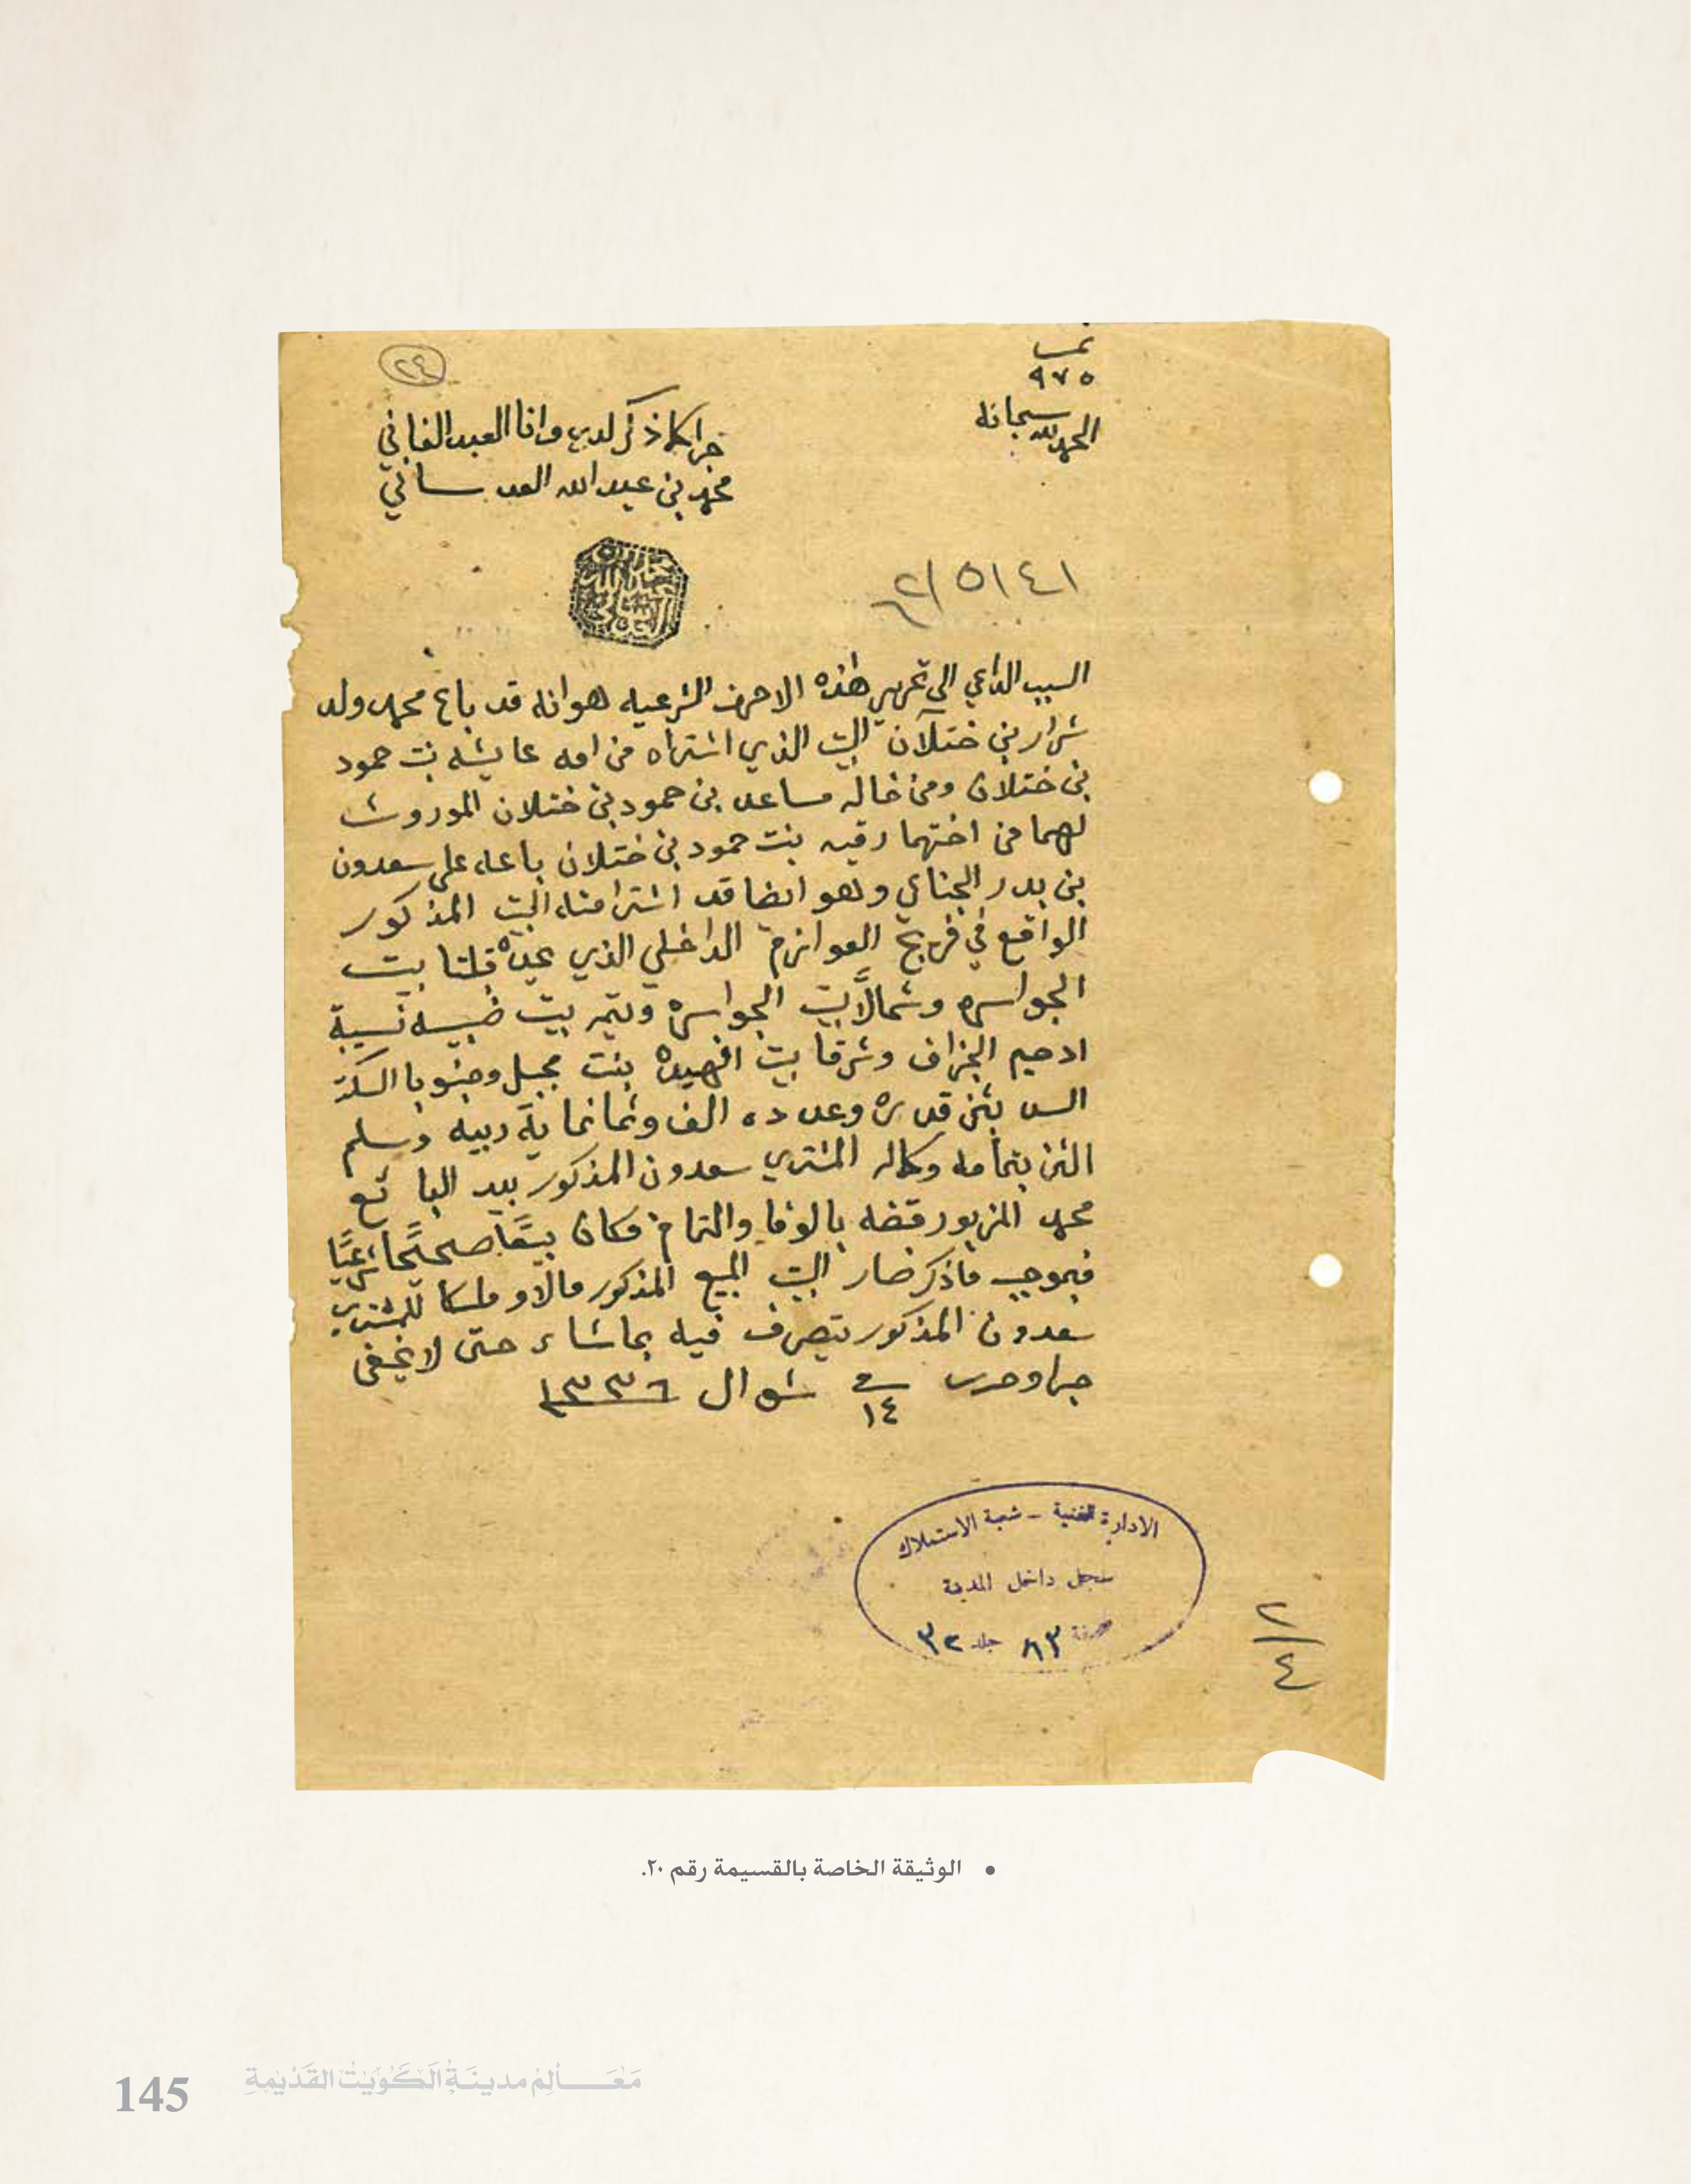 نمبر
٩٧٥
الحمد لله سبحانه
٢٤
جرا كما ذكر لدي وانا العبد الفاني
محمد بن عبد الله العدساني
محمد بن عبد الله العدساني
السبب الداعي الى تحرير هذه الاحرف الشرعيه هو انه قد باع محمد ولد
شرار بن ختلآن البيت الذي اشتراه من امه عايشه بنت حمود
بن ختلان ومن خاله مساعد بن حمود بن ختلان الموروث
لهما من اختهما رقيه بنت حمود بن ختلان باعه على سعدون
بن بدر الجناي وهو ايضا قد اشترا منه البيت المذكور
الواقع في فريج العوازم الداخلي الذي يحده قبلتا بيت
الجواسره وشمالاً بيت الجواسره ويتمه بيت ضبيه نسيبة
ادحيم الجزاف وشرقا بيت افهيده بنت مجبل وجنوبا السكة
السد بثمن قدره وعدده الف وثمانماية ربيه وسلم
الثمن بتمامه وكماله المشتري سعدون المذكور بيد البائع
محمد المزبور قبضه بالوفا والتمام فكان بيعًا صحيحًا شرعيًا
فبموجب ماذكر صار البيت المبيع المذكور مالا وملكا للمشتري
سعدون المذكور يتصرف فيه بماشاء حتى لا يخفى
جرا وحرر في ١٤ شوال ١٣٣٦
الادارة الفنية - شعبة الاستملاك
سجل داخل المدينة
صفحة ٨٣ جلد ٣٢
٢/٤
• الوثيقة الخاصة بالقسيمة رقم ٢٠.
145 مَعَالِمْ مدينَةُ الكُوَيْتْ القَدْيمةِ